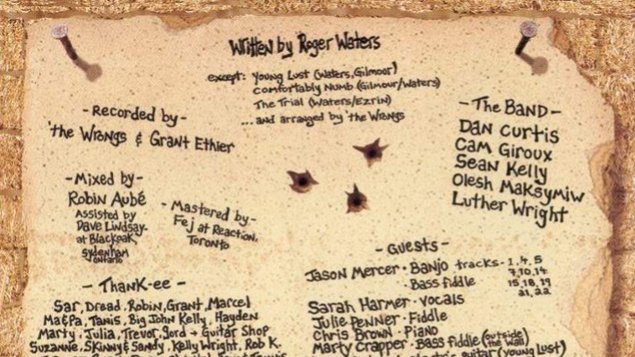 Written by Roger Waters
except: Young Lust (Waters, Gilmoor)
Comfortably Numb (Gilmour/Waters)
The Trial (Waters/Ezrin)
...and arranged by 'the Wrongs
- Recorded by -
'the Wrongs & Grant Ethier
- Mixed by -
Robin Aubé
Assisted by
Dave Lindsay
at Blackoak,
Sydenham
Ontario
- Mastered by -
Fej at Reaction,
Toronto
- The Band -
Dan Curtis
Cam Giroux
Sean Kelly
Olesh Maksymiw
Luther Wright
- Guests -
Jason Mercer · Banjo tracks - 1, 4, 5
7, 10, 14
· Bass fiddle 15, 18, 19
21, 22
Sarah Harmer · vocals
Julie Penner · Fiddle
Chris Brown · Piano
Marty Crapper · Bass fiddle (outside the Wall)
electric guitar (young Lust)
- Thank-ee -
Sar, Dread, Robin, Grant, Marcel
Ma&Pa, Tanis, Big John Kelly, Hayden
Marty, Julia, Trevor, Jord + Guitar Shop
Suzanne, Skinny & Sandy, Kelly Wright, Rob K.